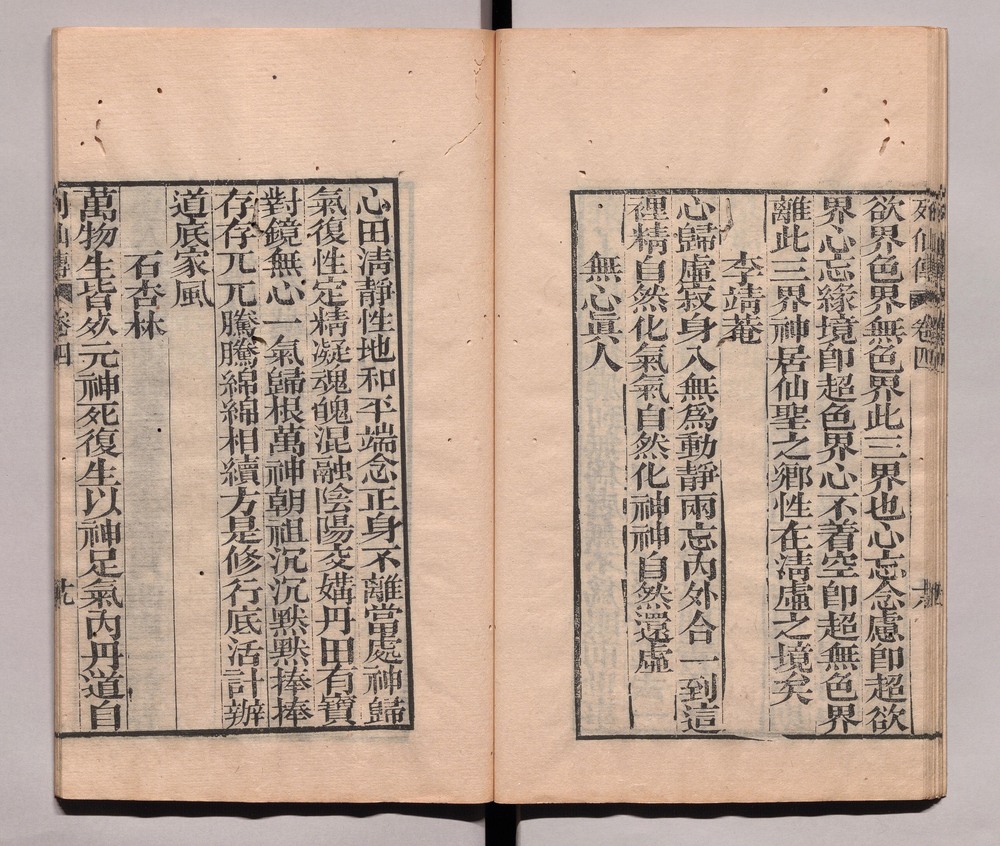 列仙傳 卷四
欲界色界無色界此三界也心忘念慮卽超欲
界心忘緣境卽超色界心不着空卽超無色界
離此三界神居仙聖之鄉性在淸虛之境矣
李靖菴
心歸虛寂身入無爲動靜兩忘內外合一到這
裡精自然化氣氣自然化神神自然還虛
無心眞人
心田淸靜性地和平端念正身不離當處神歸
氣復性定精凝魂魄混融陰陽交媾丹田有寶
對鏡無心一氣歸根萬神朝祖沉沉默默捧捧
存存兀兀騰騰綿綿相續方是修行底活計辦
道底家風
石杏林
萬物生皆死元神死復生以神足氣內丹道自
列仙傳 卷四